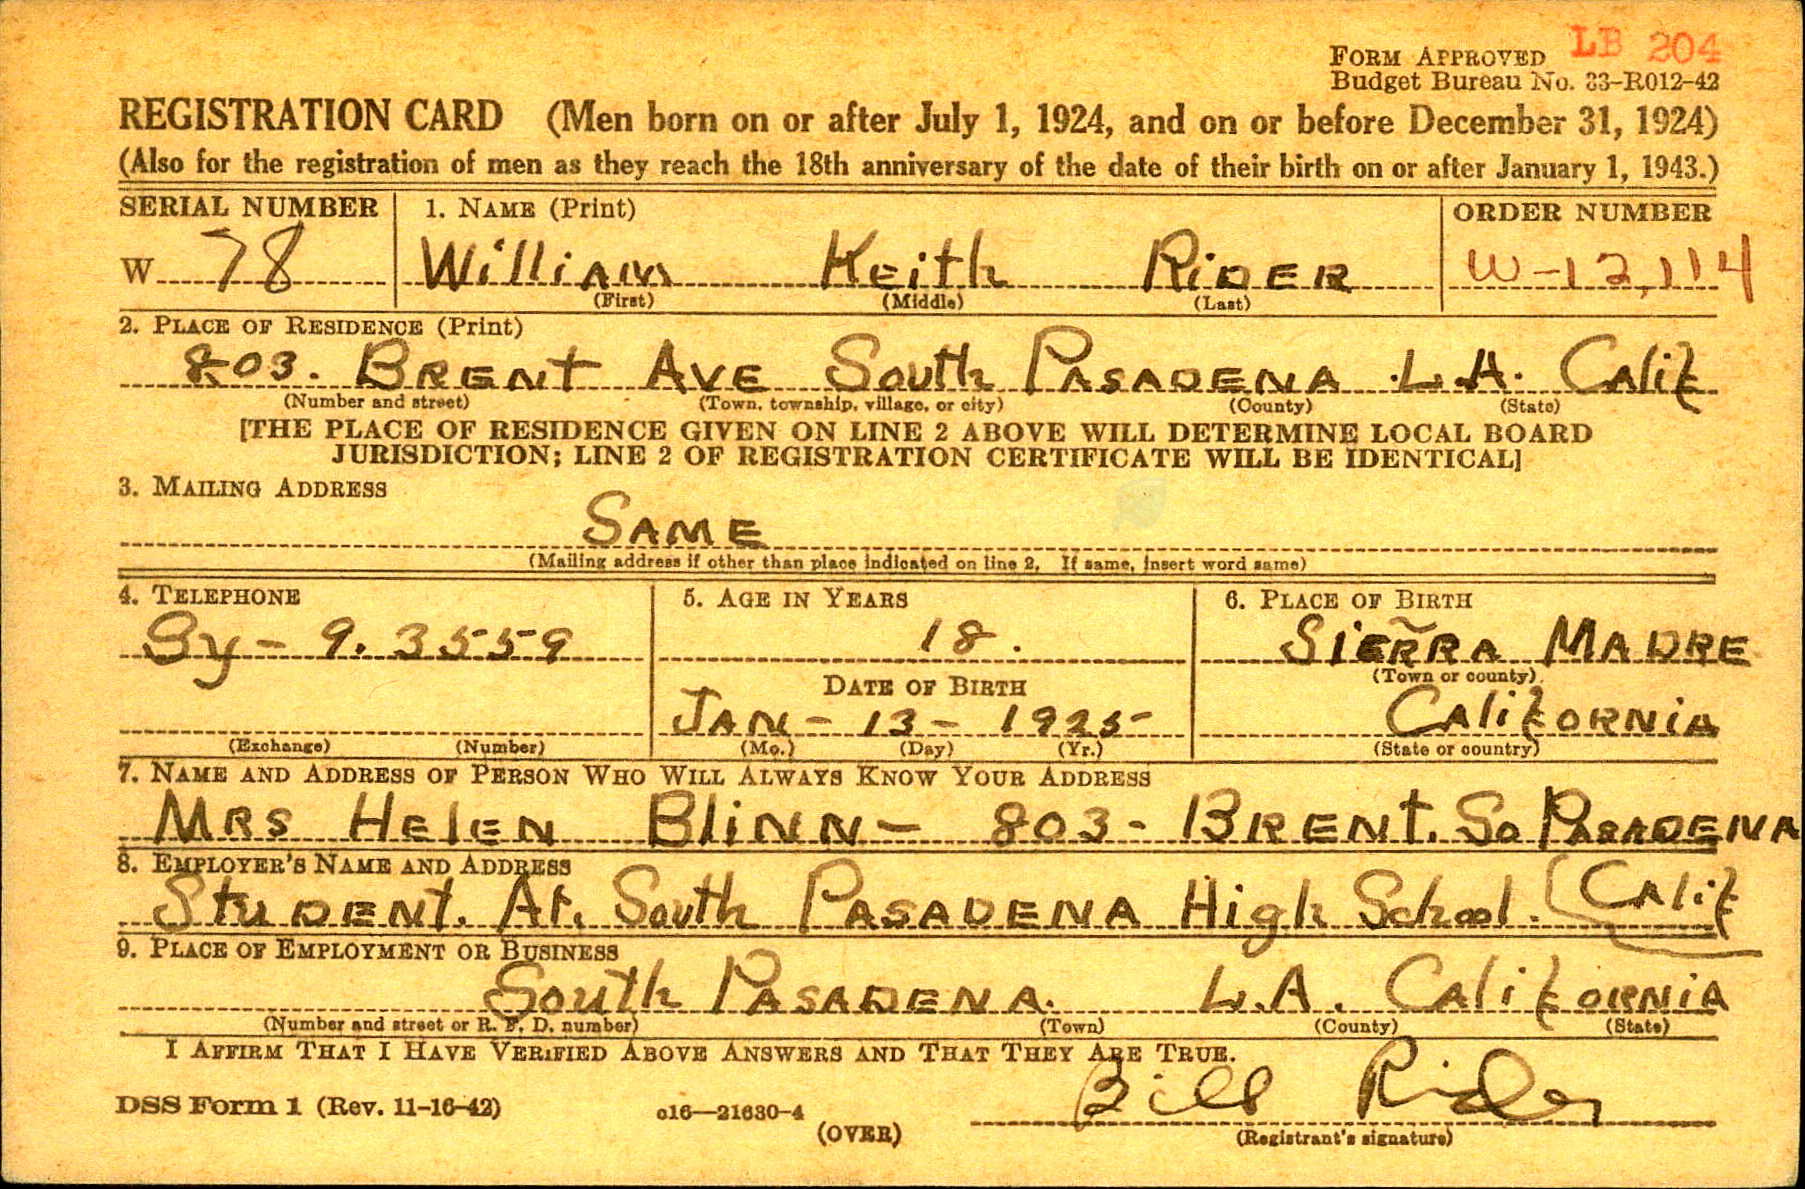 LB 204
FORM APPROVED
Budget Bureau No. 33-R012-42
REGISTRATION CARD (Men born on or after July 1, 1924, and on or before December 31, 1924)
(Also for the registration of men as they reach the 18th anniversary of the date of their birth on or after January 1, 1943.)
SERIAL NUMBER 1. NAME (Print) ORDER NUMBER
W 78 William Keith RiDER W-12,114
(First) (Middle) (Last)
2. PLACE OF RESIDENCE (Print)
803. BRENT AVE South PASADENA L.A. Calif
(Number and street) (Town, township, village, or city) (County) (State)
[THE PLACE OF RESIDENCE GIVEN ON LINE 2 ABOVE WILL DETERMINE LOCAL BOARD
JURISDICTION; LINE 2 OF REGISTRATION CERTIFICATE WILL BE IDENTICAL]
3. MAILING ADDRESS
SAME
(Mailing address if other than place indicated on line 2. If same, insert word same)
4. TELEPHONE 5. AGE IN YEARS 6. PLACE OF BIRTH
Sy- 9. 3559 18. SiERRA MADRE
(Town or county)
DATE OF BIRTH
JAN- 13- 1925 CALifORNiA
(Exchange) (Number) (Mo.) (Day) (Yr.) (State or country)
7. NAME AND ADDRESS OF PERSON WHO WILL ALWAYS KNOW YOUR ADDRESS
MRS HElEN BliNN- 803- BRENT. So PASADENA
8. EMPLOYER'S NAME AND ADDRESS
StuDENT. At. South PASADENA High School. (CAlif
9. PLACE OF EMPLOYMENT OR BUSINESS
South PASADENA. L.A. CalifORNiA
(Number and street or R. F. D. number) (Town) (County) (State)
I AFFIRM THAT I HAVE VERIFIED ABOVE ANSWERS AND THAT THEY ARE TRUE.
Bill Rider
DSS Form 1 (Rev. 11-16-42) c16—21630-4
(OVER) (Registrant's signature)